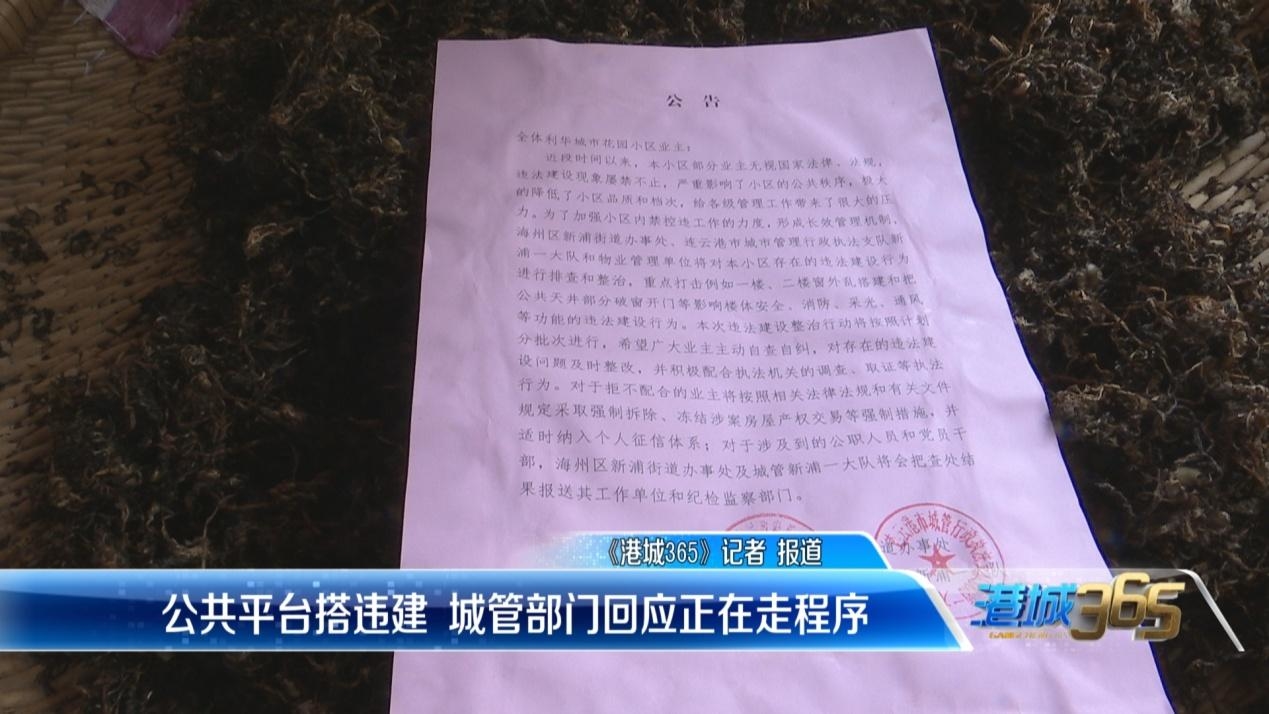 公 告
全体利华城市花园小区业主：
近段时间以来，本小区部分业主无视国家法律、法规，
违法建设现象屡禁不止，严重影响了小区的公共秩序，极大
的降低了小区品质和档次，给各级管理工作带来了很大的压
力。为了加强小区内禁控违工作的力度，形成长效管理机制，
海州区新浦街道办事处、连云港市城市管理行政执法支队新
浦一大队和物业管理单位将对本小区存在的违法建设行为
进行排查和整治，重点打击例如一楼、二楼窗外乱搭建和把
公共天井部分破窗开门等影响楼体安全、消防、采光、通风
等功能的违法建设行为。本次违法建设整治行动将按照计划
分批次进行，希望广大业主主动自查自纠，对存在的违法建
设问题及时整改，并积极配合执法机关的调查、取证等执法
行为。对于拒不配合的业主将按照相关法律法规和有关文件
规定采取强制拆除、冻结涉案房屋产权交易等强制措施，并
适时纳入个人征信体系；对于涉及到的公职人员和党员干
部，海州区新浦街道办事处及城管新浦一大队将会把查处结
果报送其工作单位和纪检监察部门。
道办事处
《港城365》记者 报道
公共平台搭违建 城管部门回应正在走程序
港城365